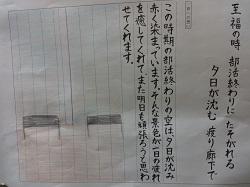 至福の時 部活終わりに たそがれる
夕日が沈む 渡り廊下で
この時期の部活終わりの空は、夕日が沈み
赤く染まっています。そんな景色が一日の疲れ
を癒してくれ、また明日も頑張ろうと思わ
せてくれます。